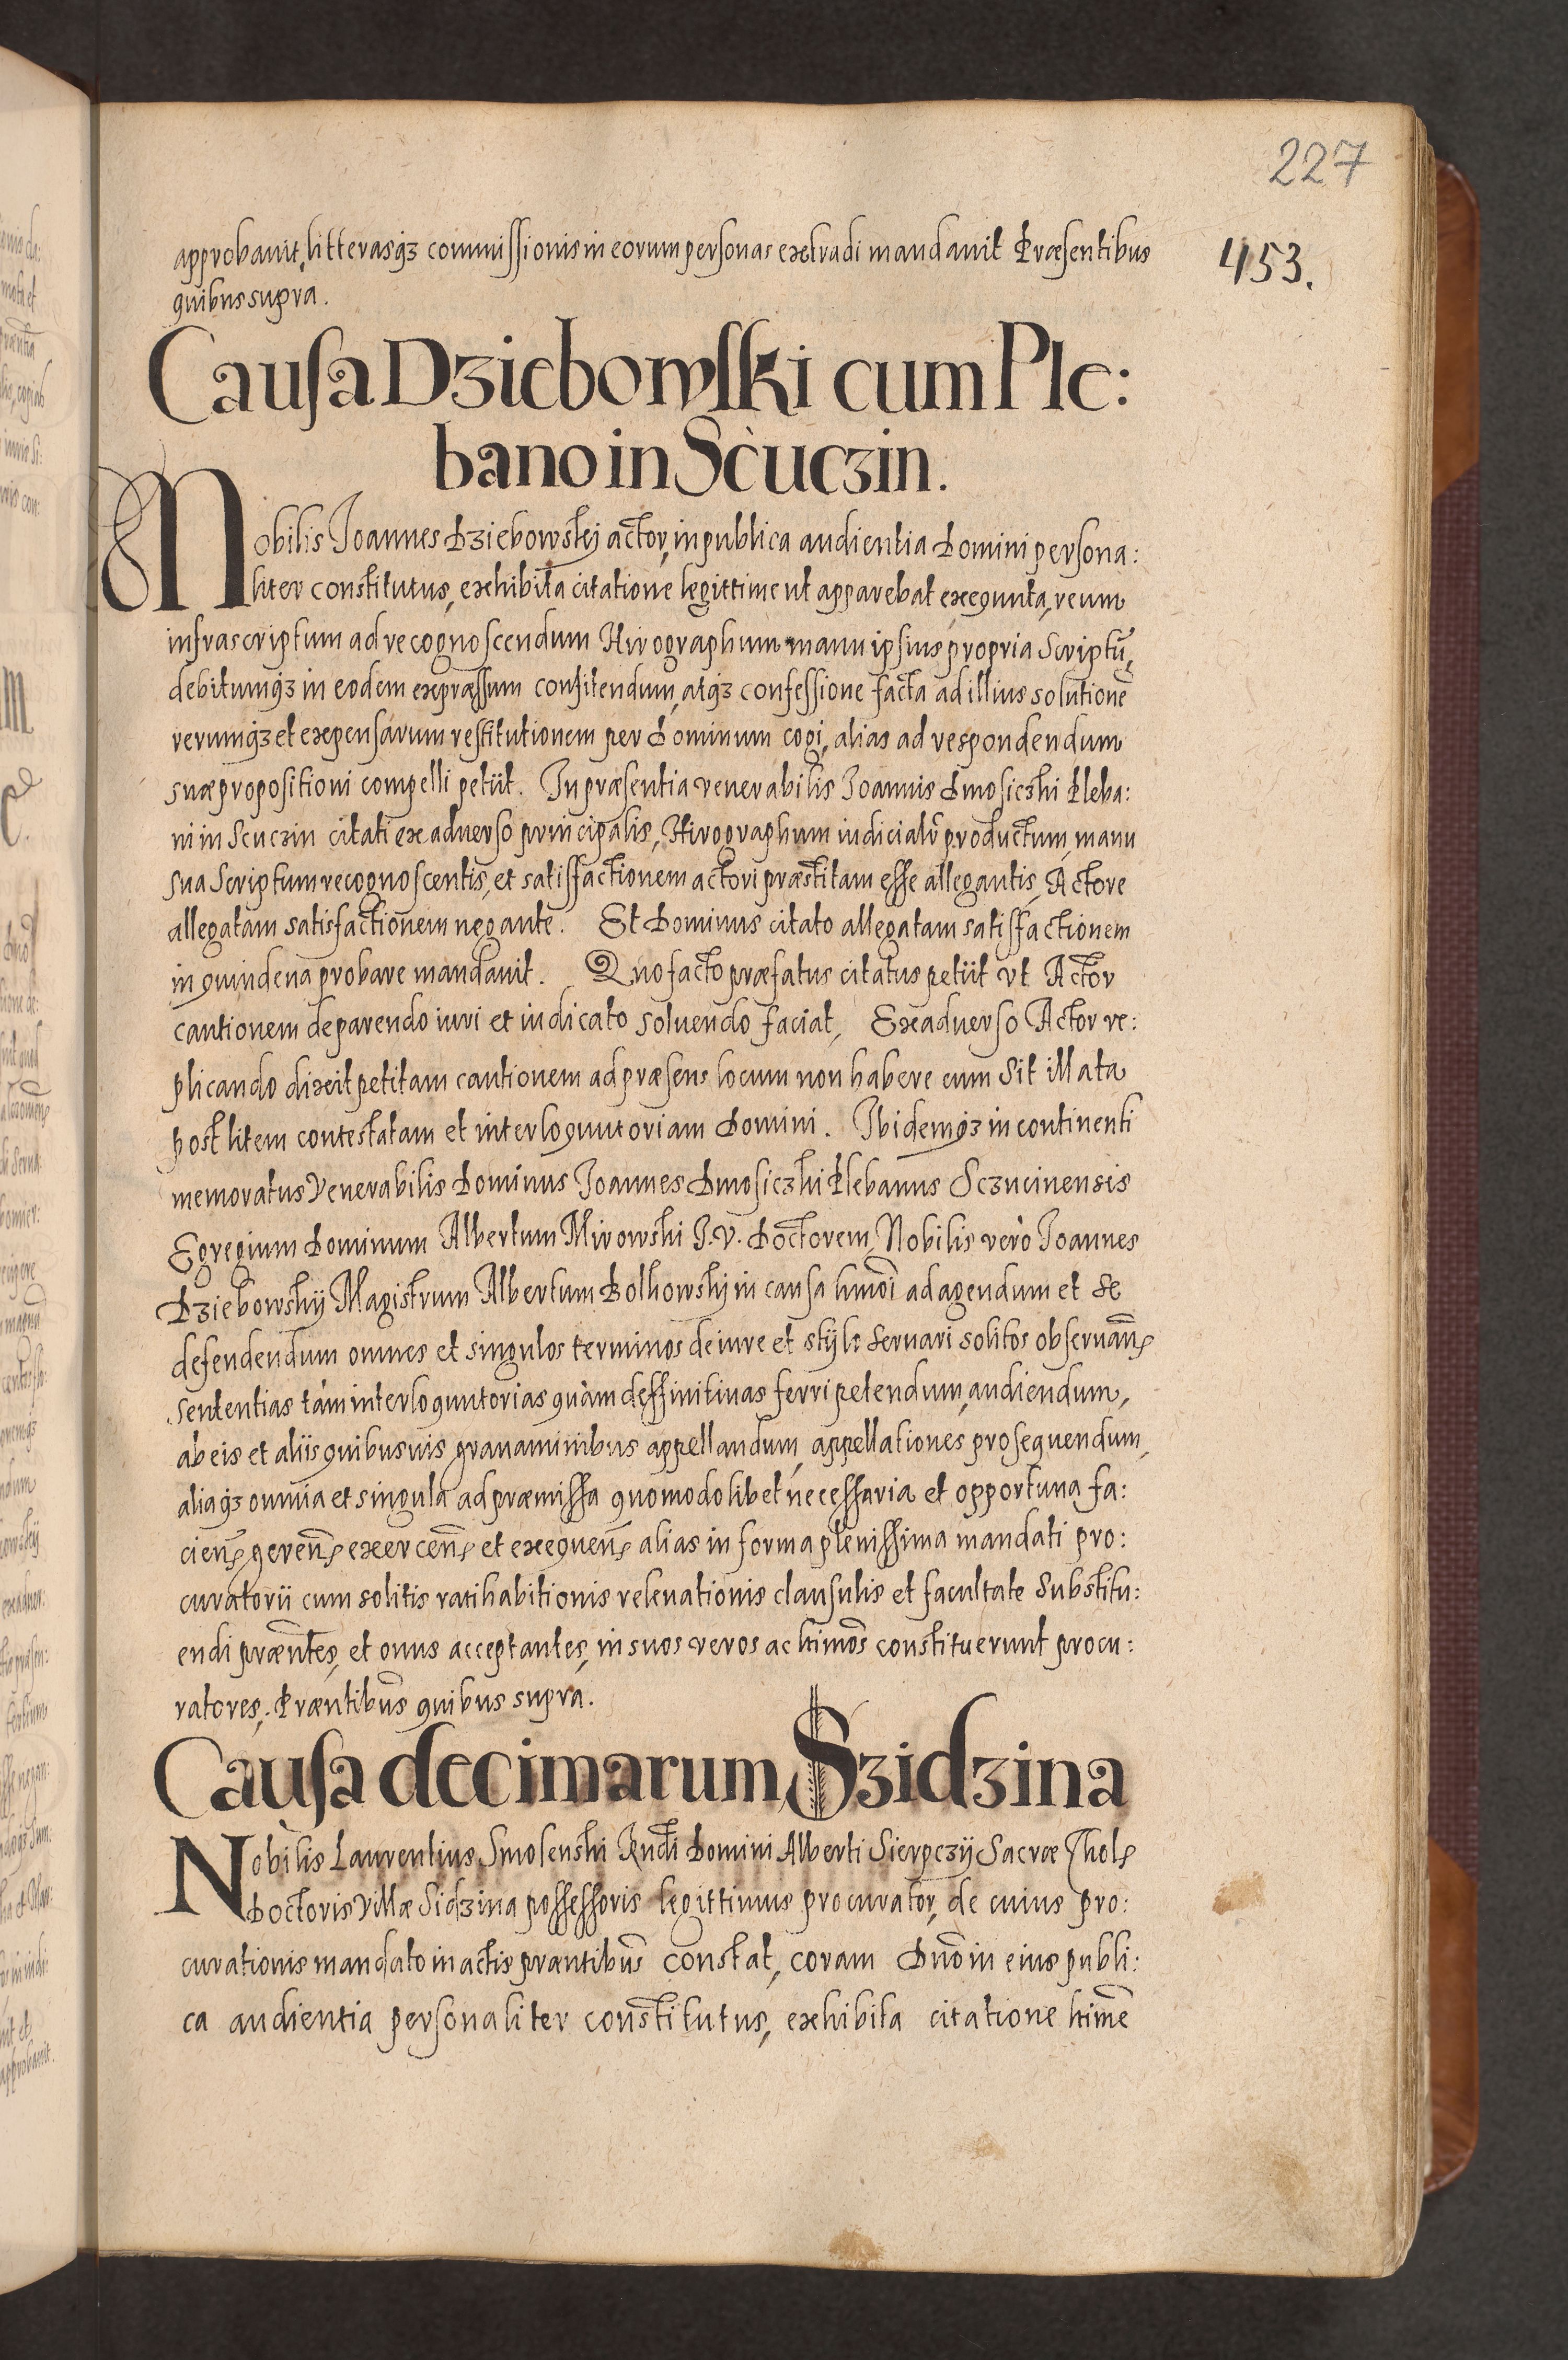 227
approbauit, litterasq3 commissionis in eorum personas extradi mandauit Præsentibus
453.
quibus supra.
Causa Dziebowski cum Ple:
bano in Scuczin.
Nobilis Joannes Dziebowskij actor, in publica audientia Domini persona:
liter constitutus, exhibita citatione legittime ut apparebat exequuta, reum
infrascriptum ad recognoscendum Hirographum manu ipsius propria Scriptū,
debitumq3 in eodem expræssum confitendum, atq3 confessione facta ad illius solutionē
rerumq3 et expensarum restitutionem per Dominum cogi, alias ad respondendum
suæ propositioni compelli petiit. In præsentia venerabilis Joannis Dmosiczki Pleba:
ni in Scuczin citati ex aduerso principalis, Hirographum iudicialr productum, manu
sua Scriptum recognoscentis, et satisfactionem actori præstitam esse allegantis, Actore
allegatam satisfactionem negante. Et Dominus citato allegatam satisfactionem
in quindena probare mandauit. Quo facto præfatus citatus petiit vt Actor
cautionem de parendo iuri et iudicato soluendo faciat, Ex aduerso Actor re:
plicando dixit petitam cautionem ad præsens locum non habere cum sit illata
post litem contestatam et interloquutoriam Domini. Ibidemq3 in continenti
memoratus Venerabilis Dominus Joannes Dmosiczki Plebanus Sczucinensis
Egregium Dominum Albertum Mirowski J.V. Doctorem, Nobilis verò Joannes
Dziebowskij Magistrum Albertum Bolkowskij in causa hmōi ad agendum et se
defendendum omnes et singulos terminos de iure et stylo seruari solitos obseruañ
sententias tàm interloquutorias quàm deffinitiuas ferri petendum, audiendum,
ab eis et aliis quibusuis grauaminibus appellandum, appellationes prosequendum,
aliaq3 omnia et singula ad præmissa quomodolibet necessaria et opportuna fa:
cieñ gereñ exerceñ et exequeñ alias in forma plenissima mandati pro:
curatorii cum solitis ratihabitionis releuationis clausulis et facultate substitu:
endi præntes, et onus acceptantes, in suos veros ac ltimos constituerunt procu:
ratores. Præntibus quibus supra.
Causa decimarum Szidzina
Nobilis Laurentius Smolenski Rndi Domini Alberti Sierpczij Sacræ Thol
Doctoris Villæ Sidzina possessoris legittimus procurator, de cuius pro:
curationis mandato in actis præntibus constat, coram Dno in eius publi:
ca audientia personaliter constitutus, exhibita citatione ltime